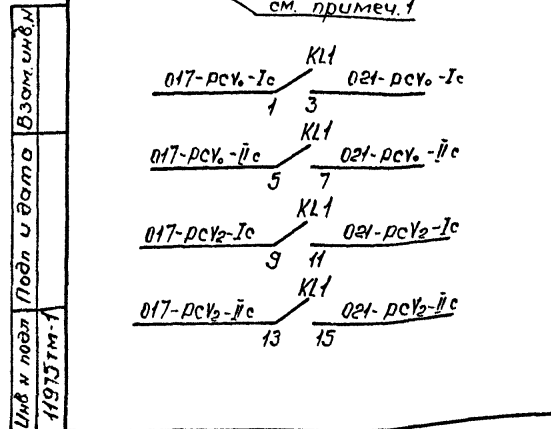 см. примеч. 1
KL1
017-РСV₀-Iс 021-РСV₀-Iс
1 3
KL1
017-РСV₀-IIс 021-РСV₀-IIс
5 7
KL1
017-РСV₂-Iс 021-РСV₂-Iс
9 11
KL1
017-РСV₂-IIс 021-РСV₂-IIс
13 15
Взам. инв. N
Подп и дата
Инв N подл
11975тм-1